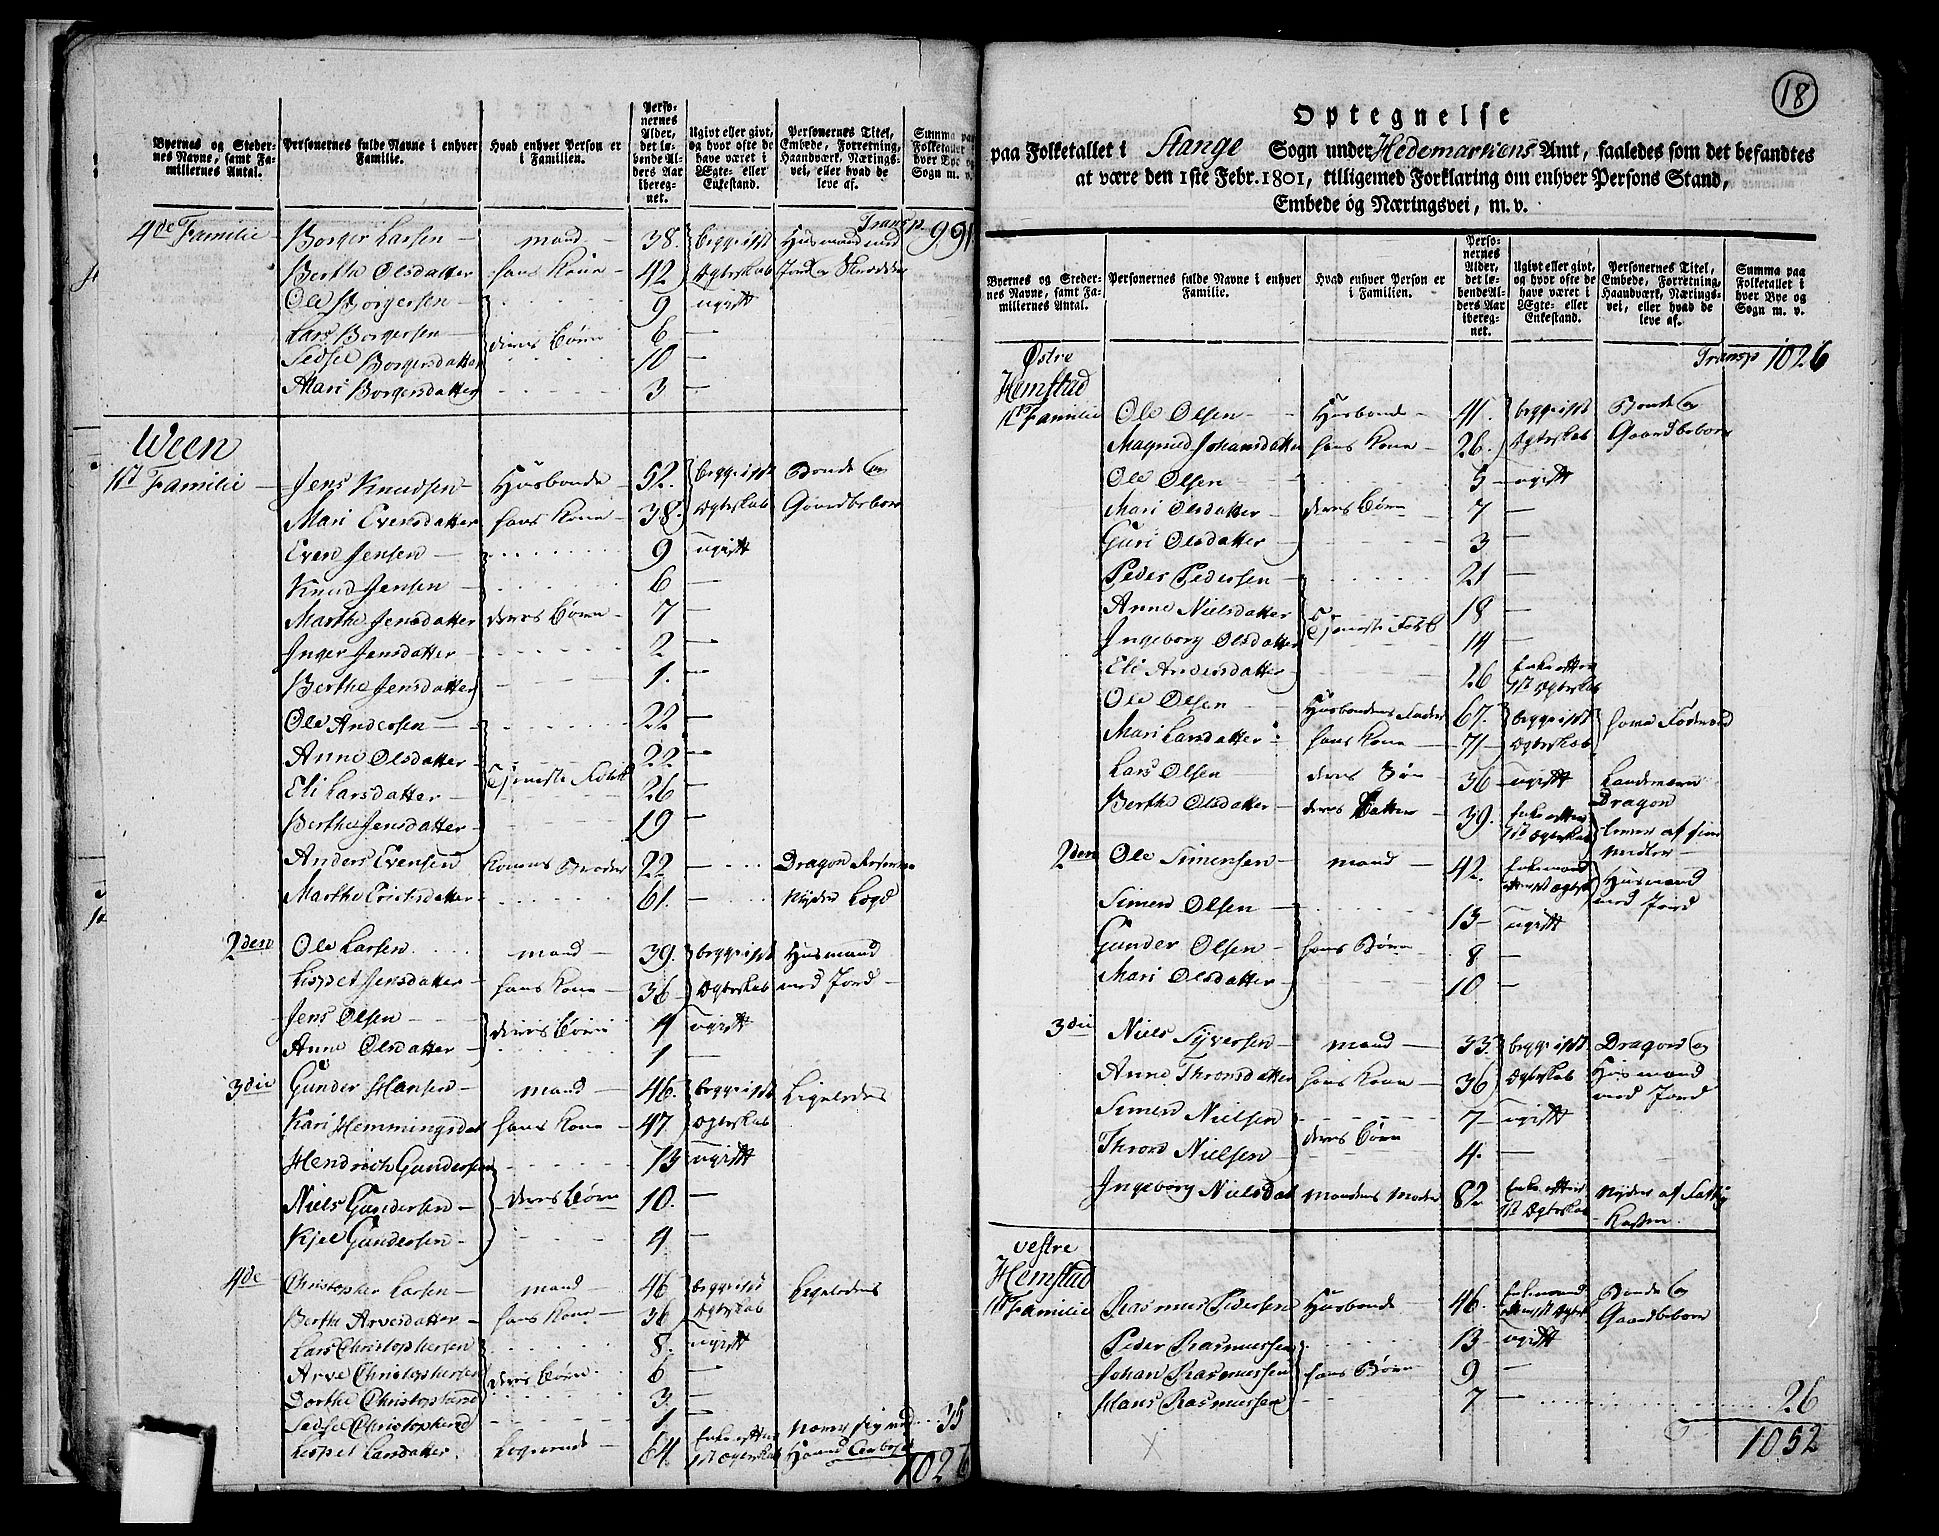 Byernes og Steder-
nes Navne, samt Fa-
miliernes Antal.
Personernes fulde Navne i enhver
Familie.
Hvad enhver Person er
i Familien.
Perso-
nernes
Alder,
det lø-
bende Al-
ders Aar
ibereg-
net.
Ugivt eller givt,
og hvor ofte de
have været i
Ægte- eller
Enkestand.
Personernes Titel,
Embede, Forretning,
Haandværk, Nærings-
vei, eller hvad de
leve af.
Summa paa
Folketallet i
hver Bye og
Sogn m. v.
Transp. 991
4de Familie Borger Larsen mand 38. begge i 1ste Husmand med
Berthe Olsdatter hans Kone 42 Ægteskab Jord og Skrædder
Ole Borgersen 9 ugivt
Lars Borgersen deres Børn 6 —
Sedsel Borgersdatter 10 —
Mari Borgersdatter 3 —
Ween
1st Familie Jens Knudsen Husbonde 52. begge i 1ste Bonde og
Mari Evensdatter hans Kone 38. Ægteskab Gaardbeboer
Even Jensen 9 ugivt
Knud Jensen 6 —
Marthe Jensdatter deres Børn 7 —
Inger Jensdatter 2 —
Berthe Jensdatter 1. —
Ole Andersen 22 —
Anne Olsdatter 22 —
Eli Larsdatter Tjeneste Folk 26 —
Berthe Jensdatter 19 —
Anders Evensen Konens Broder 22 — Dragon
Marthe 61. — Nyder Logd
2den Ole Larsen mand 39. begge i 1ste Husmand
Lispet Jensdatter hans Kone 36 Ægteskab med Jord
Jens Olsen deres Børn 4 ugivt
Anne Olsdatter 1 —
3die Gunder Hansen mand 46. begge i 1ste Ligeledes
Kari Hemmingsdat hans Kone 47 Ægteskab
Hendrich Gundersen 13 ugivt
Niels Gundersen deres Børn 10. —
Kjel Gundersen 4 —
4de Christopher Larsen mand 46 begge i 1ste Ligeledes
Berthe Arvesdatter hans Kone 36 Ægteskab
Lars Christophersen 8. ugivt
Arve Christophersen deres Børn 6 —
Dorthe Christophersd 3. —
Sedsel Christophersd 1. —
Lispet Larsdatter Logerende 64. Enke efter 1st Ægteskab Nærer sig ved Haand Arbejde 35
1026
18
Optegnelse
paa Folketallet i Stange Sogn under Hedemarkens Amt, saaledes som det befandtes
at være den 1ste Febr. 1801, tilligemed Forklaring om enhver Persons Stand,
Embede og Næringsvei, m. v.
Byernes og Steder-
nes Navne, samt Fa-
miliernes Antal.
Personernes fulde Navne i enhver
Familie.
Hvad enhver Person er
i Familien.
Perso-
nernes
Alder,
det lø-
bende Al-
ders Aar
ibereg-
net.
Ugivt eller givt,
og hvor ofte de
have været i
Ægte- eller
Enkestand.
Personernes Titel,
Embede, Forretning,
Haandværk, Nærings-
vei, eller hvad de
leve af.
Summa paa
Folketallet i
hver Bye og
Sogn m. v.
Transp 1026
Østre
Hemstad
1st Familie Ole Olsen Husbonde 41. begge i 1ste Bonde og
Magnild Johansdatter hans Kone 26. Ægteskab Gaardbeboer
Ole Olsen 5 ugivt
Mari Olsdatter deres Børn 7 —
Guri Olsdatter 3 —
Peder Pedersen 21 —
Anne Nielsdatter Tjeneste Folk 18 —
Ingeborg Olsdatter 14 —
Eli Andersdatter 26 Enke efter 1st Ægteskab
Ole Olsen Husbondens Fader 67. begge i 1ste
Mari Larsdatter hans Kone 71 Ægteskab
Lars Olsen deres Søn 36 ugivt Landeværn Dragon
Berthe Olsdatter deres Datter 39. Enke efter 1st Ægteskab lever af sine Midler
2den Ole Simensen mand 42. Enkemand Husmand med Jord
Simen Olsen 13 ugivt
Gunder Olsen hans Børn 8 —
Mari Olsdatter 10. —
3die Niels Syversen mand 33. begge i 1ste Dragon og
Anne Thronsdatter hans Kone 36 Ægteskab Husmand med Jord
Simen Nielsen 7 ugivt
Thron Nielsen deres Børn 4. —
Ingeborg Nielsdat mandens moder 82. Enke efter 1st Ægteskab Nyder af Fattig Kassen
Vestre
Hemstad
1st Familie Rasmus Pedersen Husbonde 46. Enkemand efter 1st Ægtesk Bonde og Gaardbeboer
Peder Rasmussen 13 ugivt
Johan Rasmussen hans Børn 9 —
Hans Rasmussen 7 — 26
1052